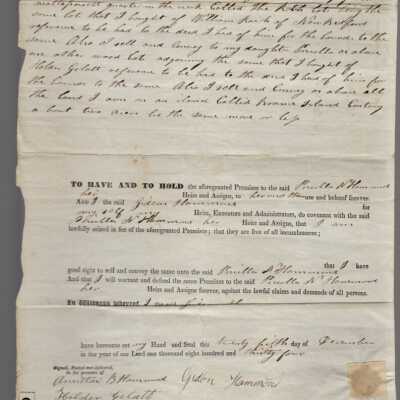 same lot that I bought of William Rusk of New Bedford
reference to be had to the deed I had of him for the bounds to the
same Also I sell and Convey to my daughter Prusilla as above
one other wood Lot adjoining the same that I bought of
Gelatt reference to be had to the deed I had of him for
the bounds to the same Also I sell and Convey as above all
the Land I own on an island Called Island Containing
a bout two acres be the same more or less
TO HAVE AND TO HOLD the aforegranted Premises to the said Prusilla D Hammond
her Heirs and Assigns, to her use and behoof forever.
And I the said Gideon Hammond for
my self my Heirs, Executors and Administrators, do covenant with the said
Prusilla D Hammond her Heirs and Assigns, that I am
lawfully seized in fee of the aforegranted Premises; that they are free of all incumbrances;
that I have
good right to sell and convey the same unto the said Prusilla D Hammond
And that I will warrant and defend the same Premises to the said Prusilla D Hammond
her Heirs and Assigns forever, against the lawful claims and demands of all persons.
In witness whereof, I
have hereunto set my Hand and Seal this twenty fifth day of December
in the year of our Lord one thousand eight hundred and thirty four
Signed, Sealed and delivered,
in the presence of
B Hammond Gideon Hammond
Gelatt